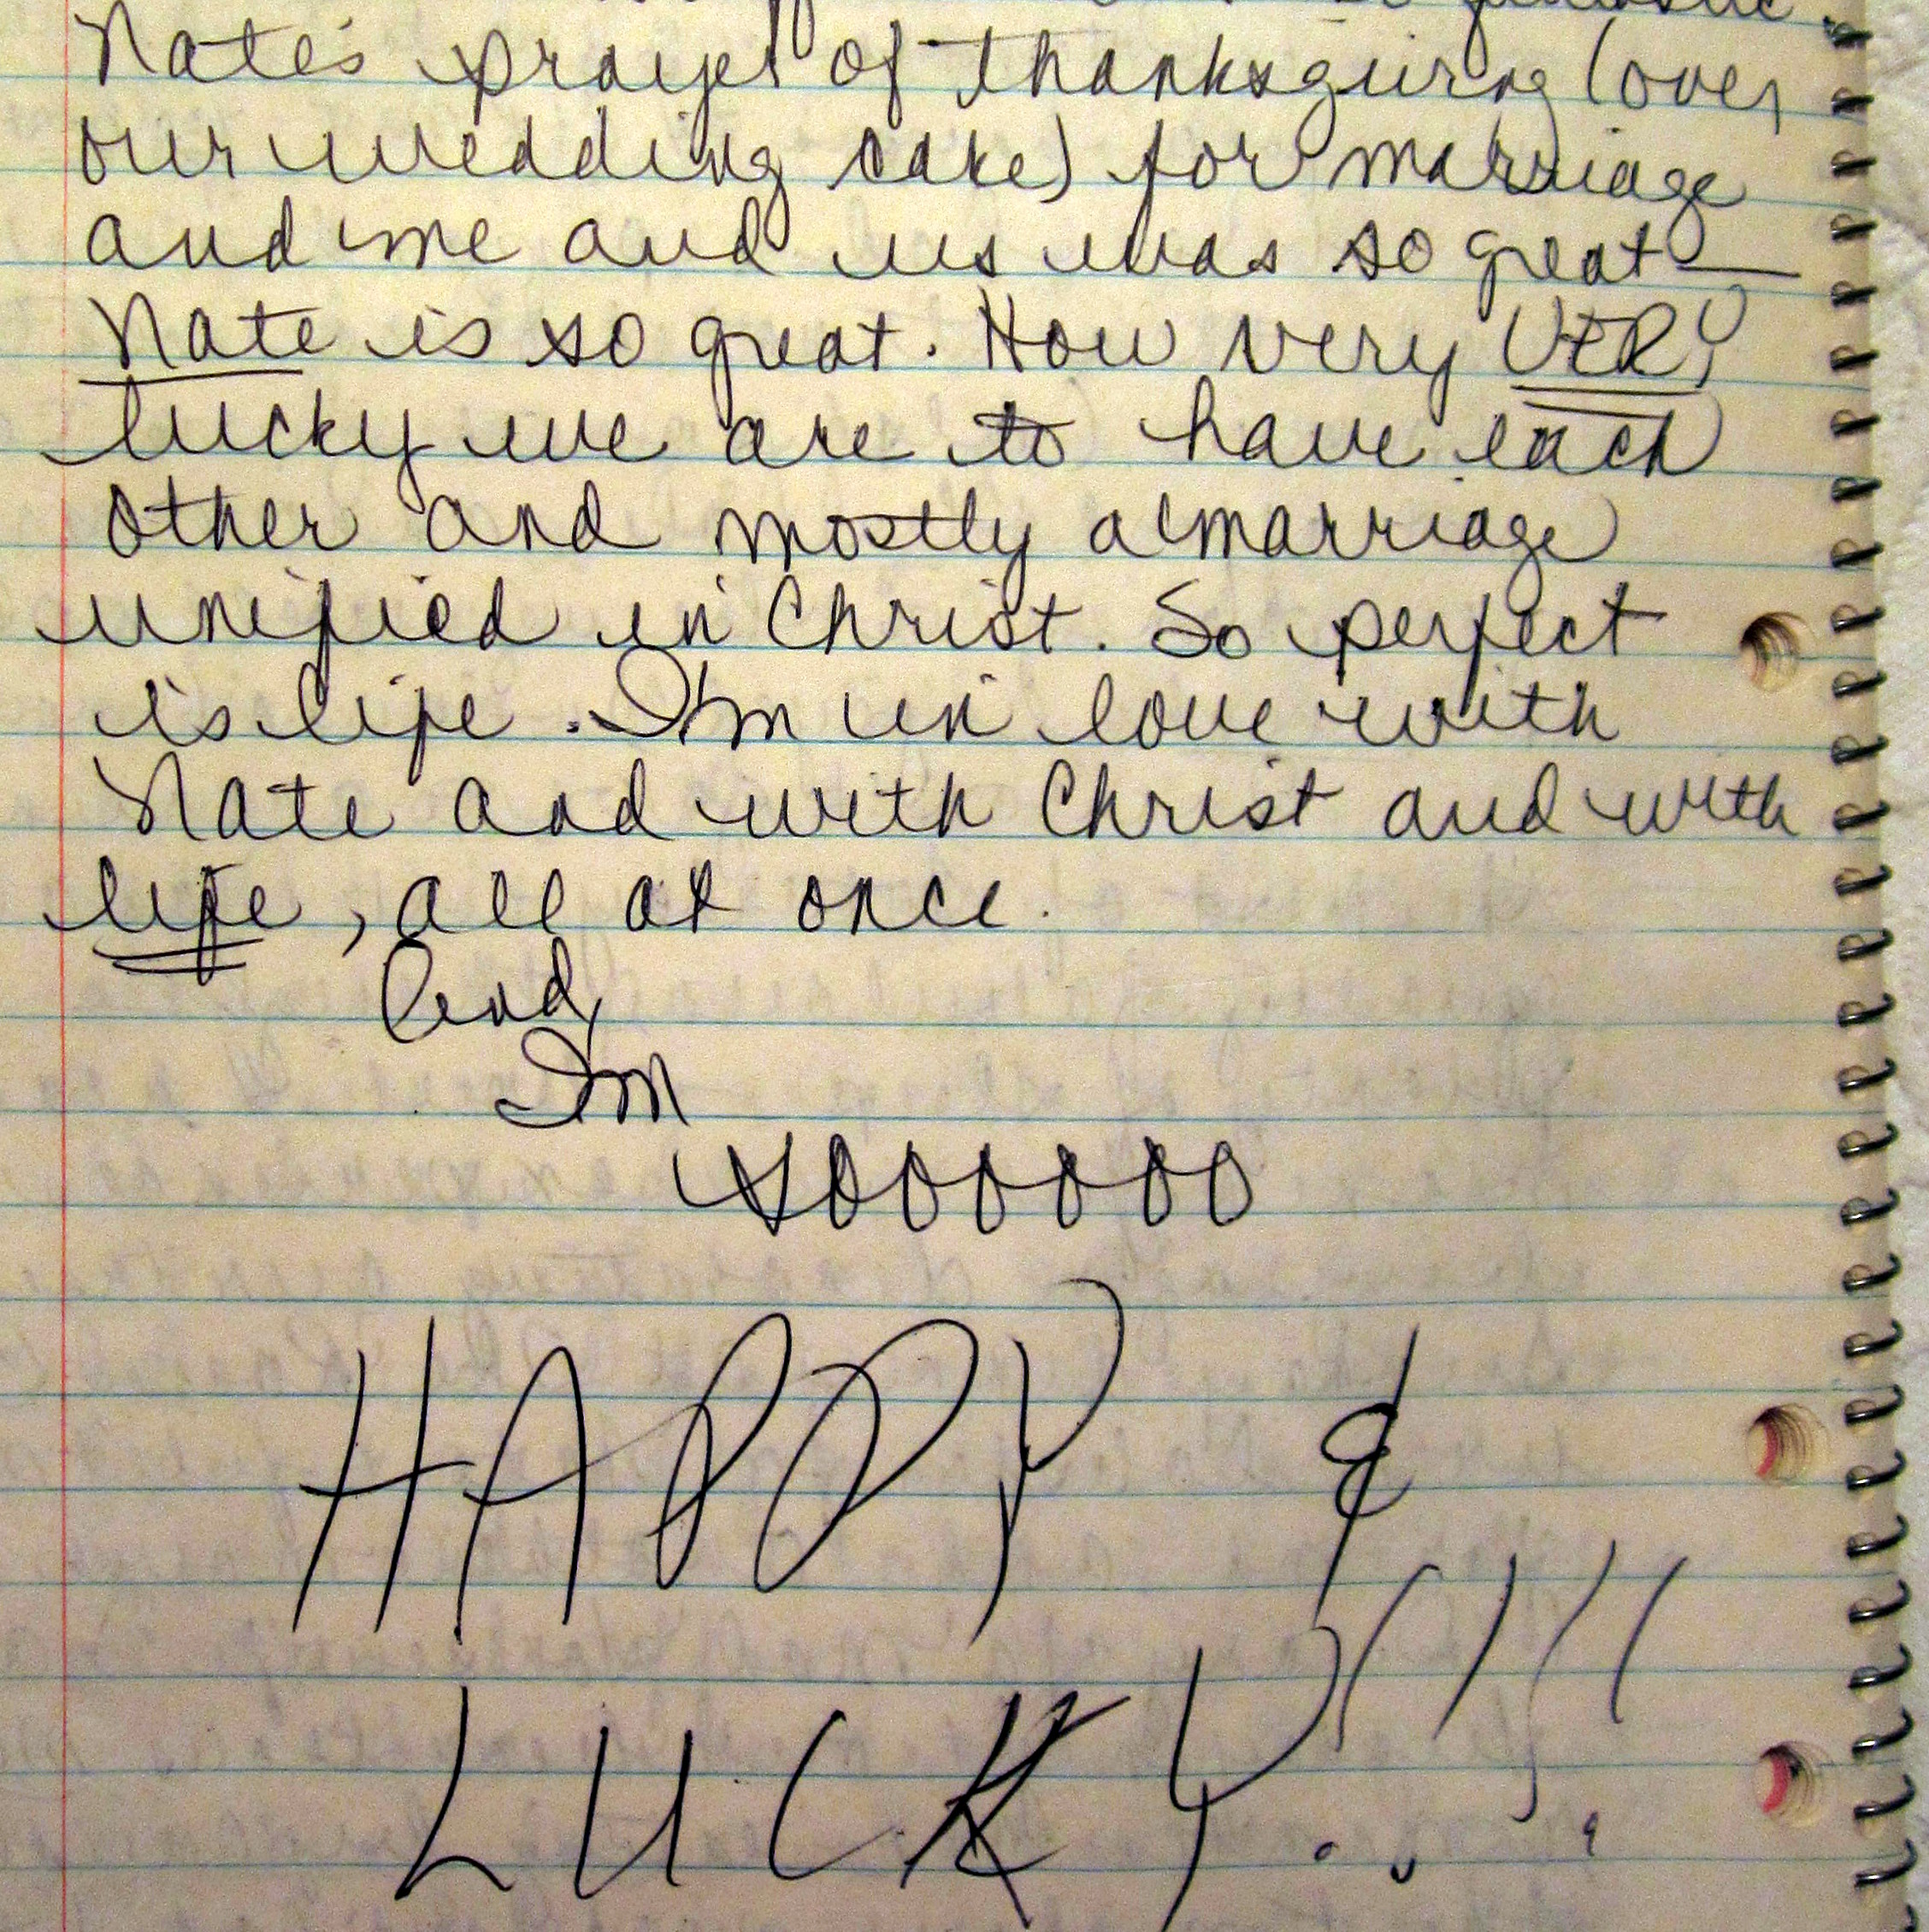 Nate's prayer of thanksgiving (over
our wedding cake) for marriage
and me and us was so great—
Nate is so great. How very VERY
lucky we are to have each
other and mostly a marriage
unified in Christ. So perfect
is life. I'm in love with
Nate and with Christ and with
life, all at once.
And,
I'm
sooooooo
HAPPY &
LUCKY!!!!